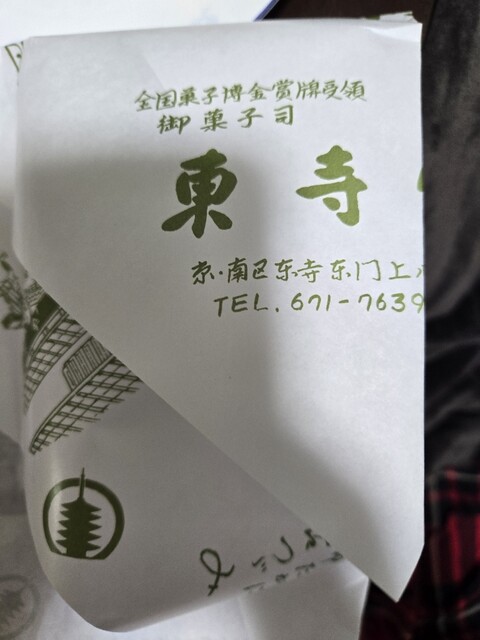 全国菓子博金賞牌受領
御菓子司
東寺
京・南区东寺东门上
TEL. 671-7639